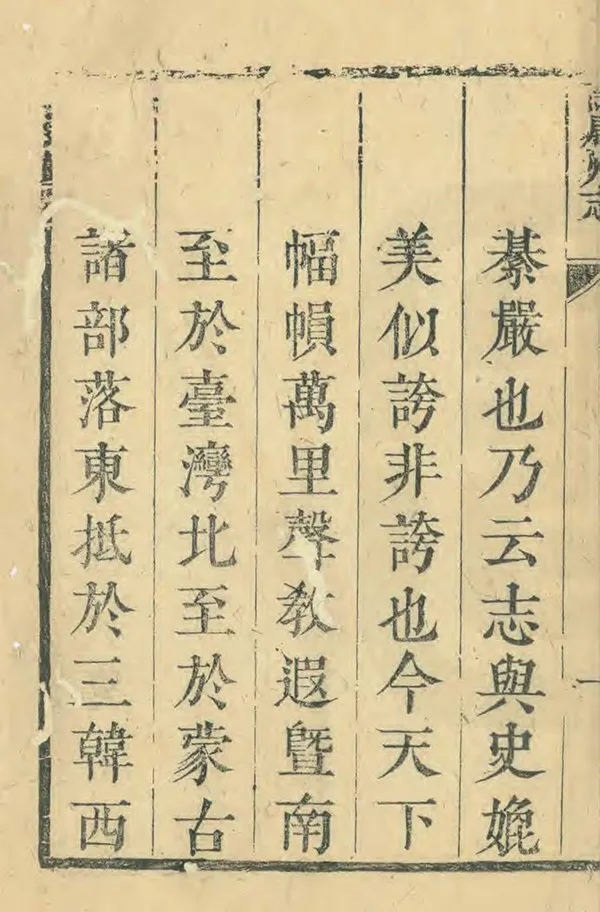 志
一
綦嚴也乃云志與史媲
美似誇非誇也今天下
幅幀萬里聲教遐曁南
至於臺灣北至於蒙古
諸部落東抵於三韓西